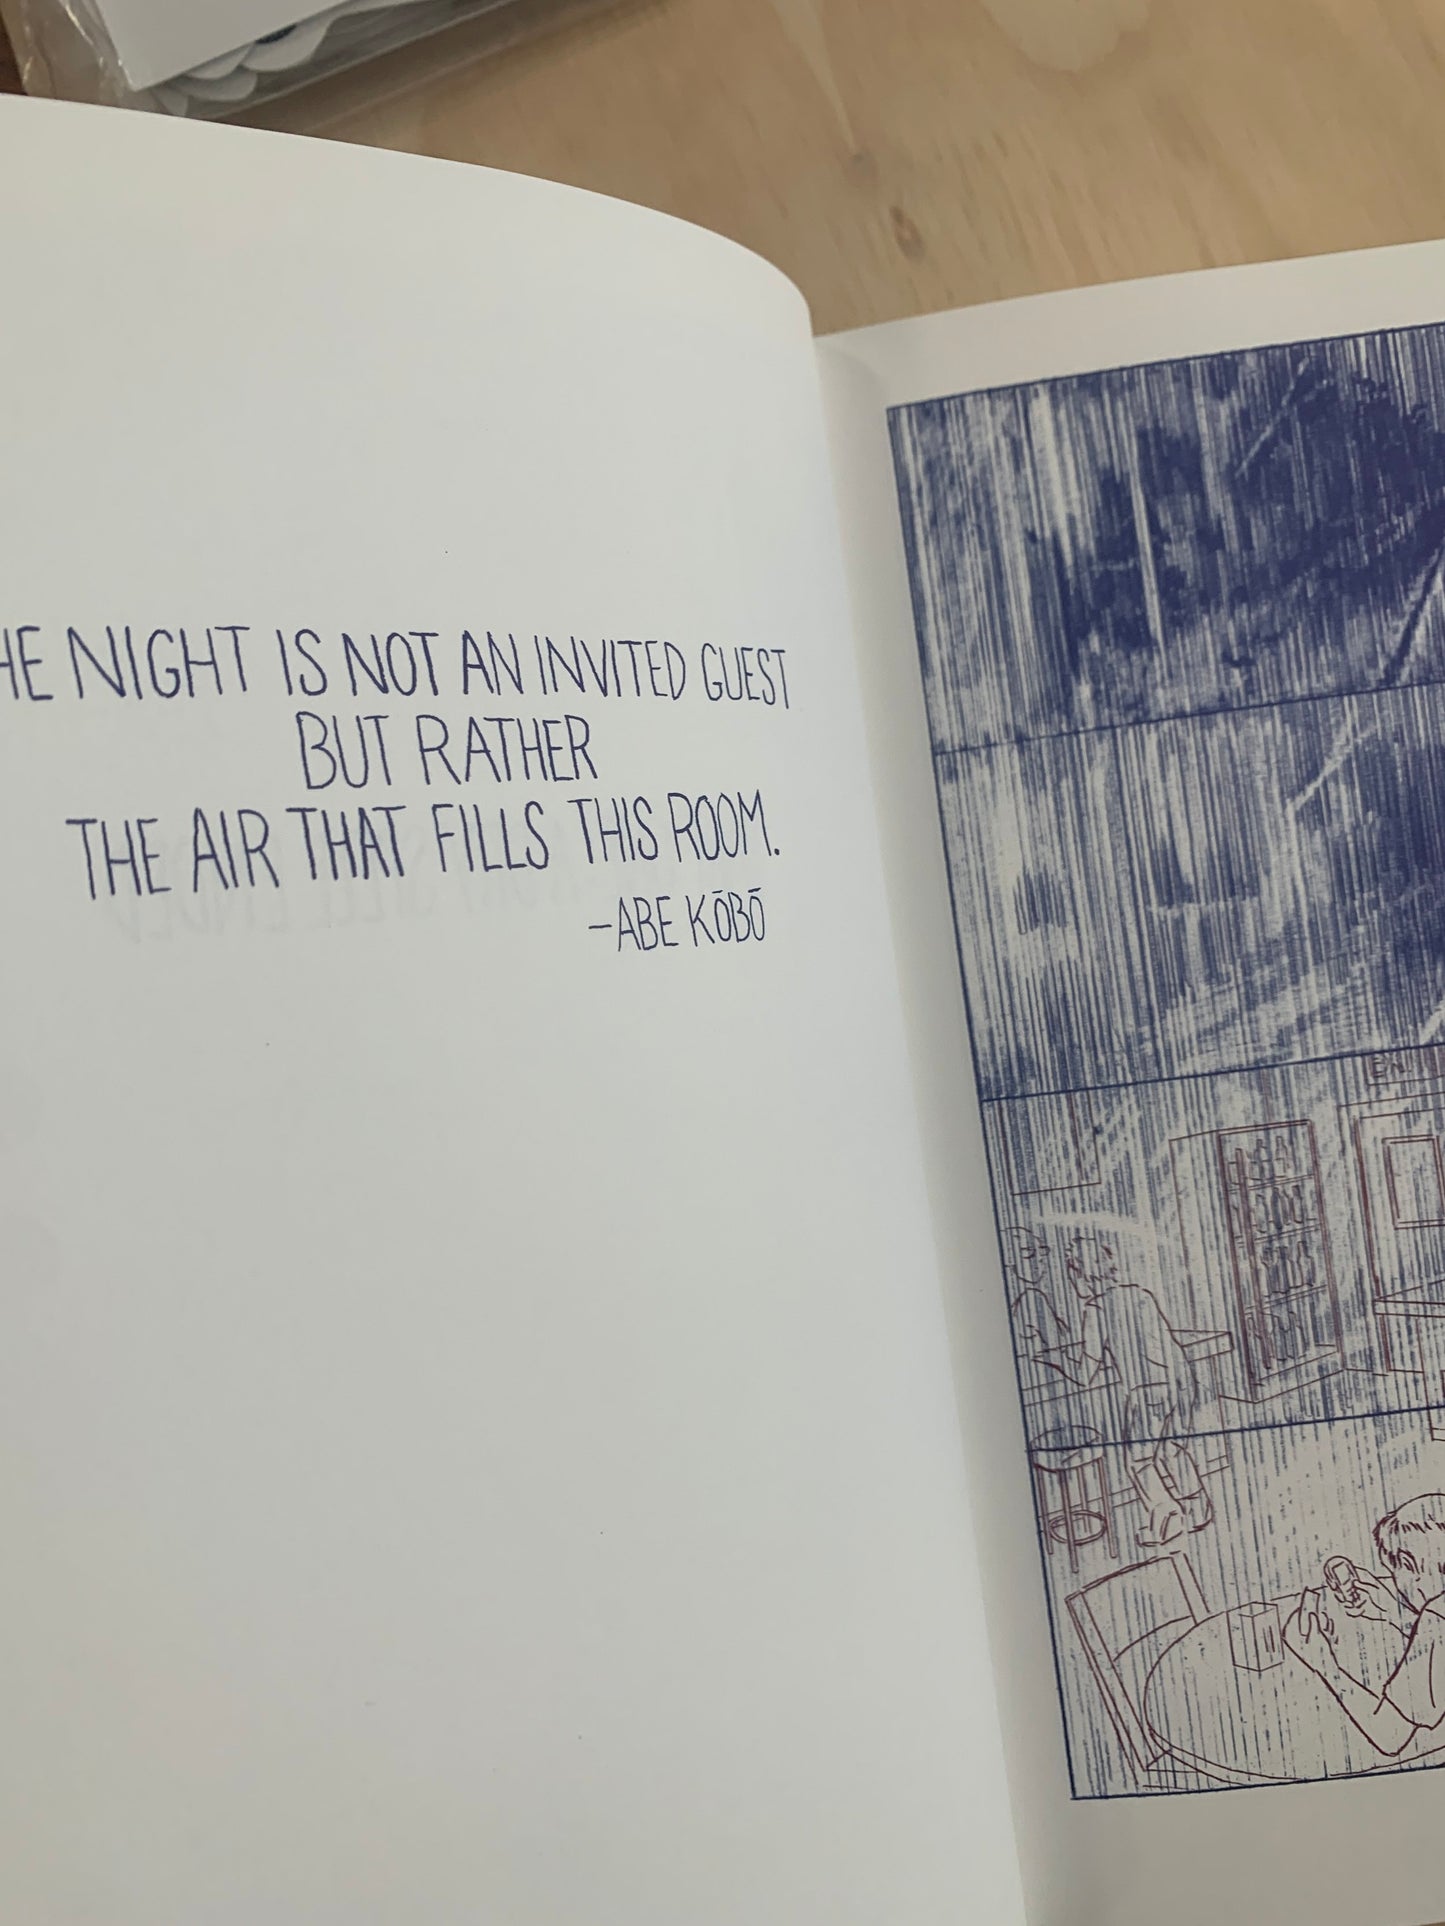 HE NIGHT IS NOT AN INVITED GUEST
BUT RATHER
THE AIR THAT FILLS THIS ROOM.
–ABE KŌBŌ